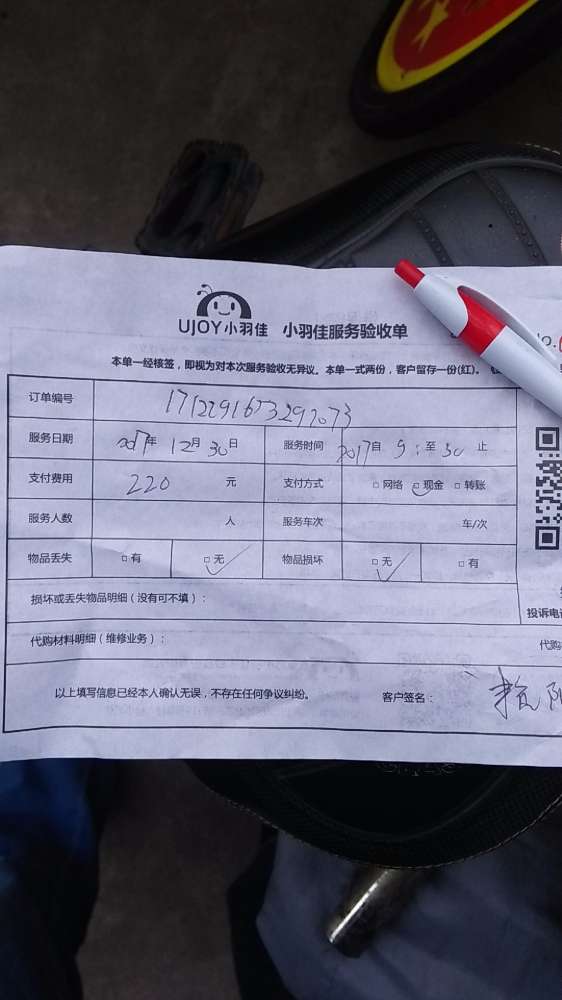 UJOY小羽佳 小羽佳服务验收单
本单一经核签，即视为对本次服务验收无异议。本单一式两份，客户留存一份(红)。
订单编号
服务日期 2017年 12月 30日 服务时间 2017自 9：至 30 止
支付费用 220 元 支付方式 □网络 □现金 □转账
服务人数 人 服务车次 车/次
物品丢失 □有 □无 物品损坏 □无 □有
损坏或丢失物品明细（没有可不填）：
投诉电
代购材料明细（维修业务）： 代购
以上填写信息已经本人确认无误，不存在任何争议纠纷。 客户签名：